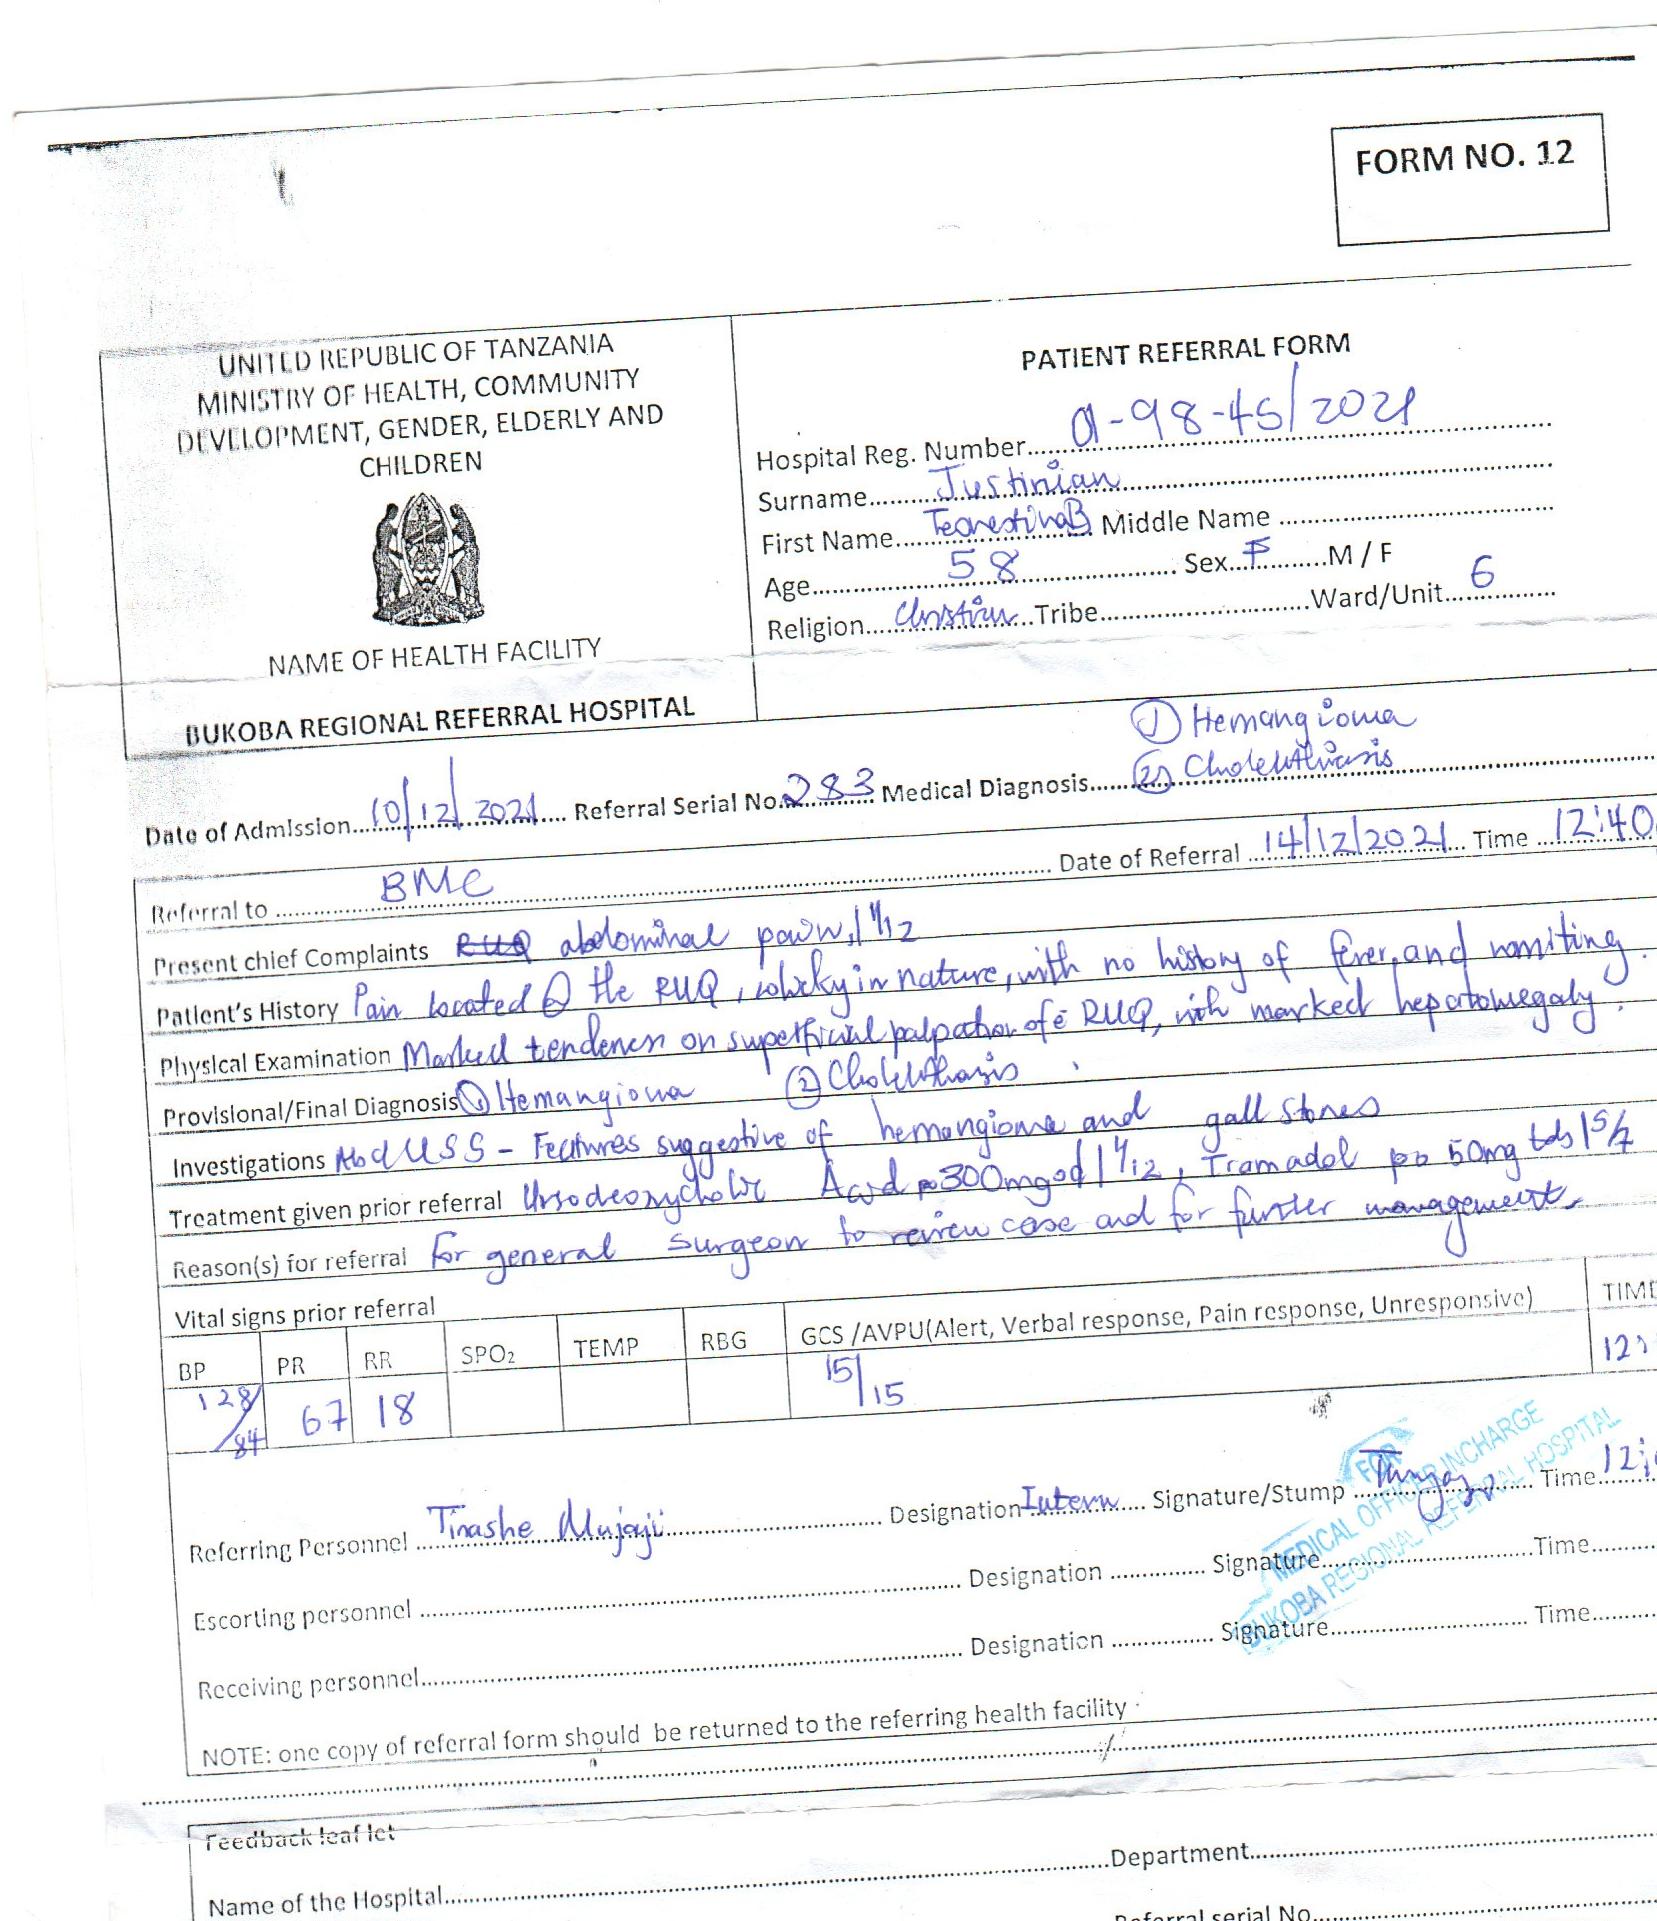 FORM NO. 12
UNITED REPUBLIC OF TANZANIA
MINISTRY OF HEALTH, COMMUNITY
DEVELOPMENT, GENDER, ELDERLY AND
CHILDREN
NAME OF HEALTH FACILITY
BUKOBA REGIONAL REFERRAL HOSPITAL
PATIENT REFERRAL FORM
Hospital Reg. Number 01-98-45/2021
Surname Justinian
First Name Teonestina B Middle Name
Age 58 Sex F M / F
Religion Christian Tribe Ward/Unit 6
① Hemangioma
Date of Admission 10/12/2021 Referral Serial No. 283 Medical Diagnosis ② Cholelithiasis
Referral to BMC Date of Referral 14/12/2021 Time 12:40
Present chief Complaints RUQ abdominal pain, 1/12
Patient's History Pain located @ the RUQ, colicky in nature, with no history of fever, and vomiting.
Physical Examination Marked tenderness on superficial palpation of RUQ, with marked hepatomegaly.
Provisional/Final Diagnosis ① Hemangioma ② Cholelithiasis
Investigations Abd USS - Features suggestive of hemangioma and gall stones
Treatment given prior referral Ursodeoxycholic Acid po 300mg od 1/12, Tramadol po 50mg tds 5/7
Reason(s) for referral For general surgeon to review case and for further management.
Vital signs prior referral
BP PR RR SPO₂ TEMP RBG GCS /AVPU(Alert, Verbal response, Pain response, Unresponsive) TIME
128/84 67 18 15/15
Referring Personnel Tinashe Mujaji Designation Intern Signature/Stump Time
FOR
MEDICAL OFFICER INCHARGE
BUKOBA REGIONAL REFERRAL HOSPITAL
Escorting personnel Designation Signature Time
Receiving personnel Designation Signature Time
NOTE: one copy of referral form should be returned to the referring health facility
Feedback leaflet
Name of the Hospital Department
Referral serial No